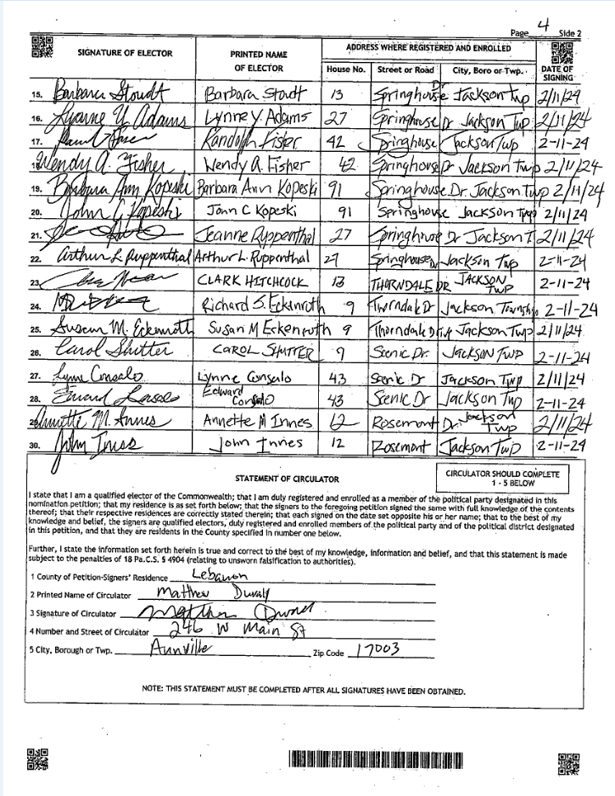 Page 4 Side 2
SIGNATURE OF ELECTOR PRINTED NAME OF ELECTOR ADDRESS WHERE REGISTERED AND ENROLLED DATE OF SIGNING
House No. Street or Road City, Boro or Twp.
15. Barbara Stoudt Barbara Stoudt 13 Springhouse Dr Jackson Twp 2/11/24
16. Lynne Y Adams Lynne Y Adams 27 Springhouse Dr Jackson Twp 2/11/24
17. Randolph Fisher 42 Springhouse Jackson Twp 2-11-24
18. Wendy A. Fisher Wendy A. Fisher 42 Springhouse Dr Jackson Twp 2/11/24
19. Barbara Ann Kopeski Barbara Ann Kopeski 91 Springhouse Dr. Jackson Twp 2/11/24
20. John C Kopeski John C Kopeski 91 Springhouse Jackson Twp 2/11/24
21. Jeanne Ruppenthal 27 Springhouse Dr Jackson T 2/11/24
22. Arthur L Ruppenthal Arthur L. Ruppenthal 27 Springhouse Dr Jackson Twp 2-11-24
23. CLARK HITCHCOCK 13 THORNDALE DR JACKSON TWP 2-11-24
24. Richard S. Eckenroth 9 Thorndale Dr Jackson Township 2-11-24
25. Susan M. Eckenroth Susan M Eckenroth 9 Thorndale Jackson Twp 2/11/24
26. Carol Shutter CAROL SHUTTER 9 Scenic Dr. JACKSON TWP 2-11-24
27. Lynne Consalo Lynne Consalo 43 Scenic Dr Jackson Twp 2/11/24
28. Edward Consalo 43 Scenic Dr Jackson Twp 2-11-24
29. Annette M. Innes Annette M Innes 12 Rosemont Dr Jackson Twp 2/11/24
30. John Innes John Innes 12 Rosemont Jackson Twp 2-11-24
STATEMENT OF CIRCULATOR
CIRCULATOR SHOULD COMPLETE
1 - 5 BELOW
I state that I am a qualified elector of the Commonwealth; that I am duly registered and enrolled as a member of the political party designated in this
nomination petition; that my residence is as set forth below; that the signers to the foregoing petition signed the same with full knowledge of the contents
thereof; that their respective residences are correctly stated therein; that each signed on the date set opposite his or her name; that to the best of my
knowledge and belief, the signers are qualified electors, duly registered and enrolled members of the political party and of the political district designated
in this petition, and that they are residents in the County specified in number one below.
Further, I state the information set forth herein is true and correct to the best of my knowledge, information and belief, and that this statement is made
subject to the penalties of 18 Pa.C.S. § 4904 (relating to unsworn falsification to authorities).
1 County of Petition-Signers' Residence Lebanon
2 Printed Name of Circulator Matthew Duvall
3 Signature of Circulator Matthew Duvall
4 Number and Street of Circulator 246 W Main St
5 City, Borough or Twp. Annville Zip Code 17003
NOTE: THIS STATEMENT MUST BE COMPLETED AFTER ALL SIGNATURES HAVE BEEN OBTAINED.